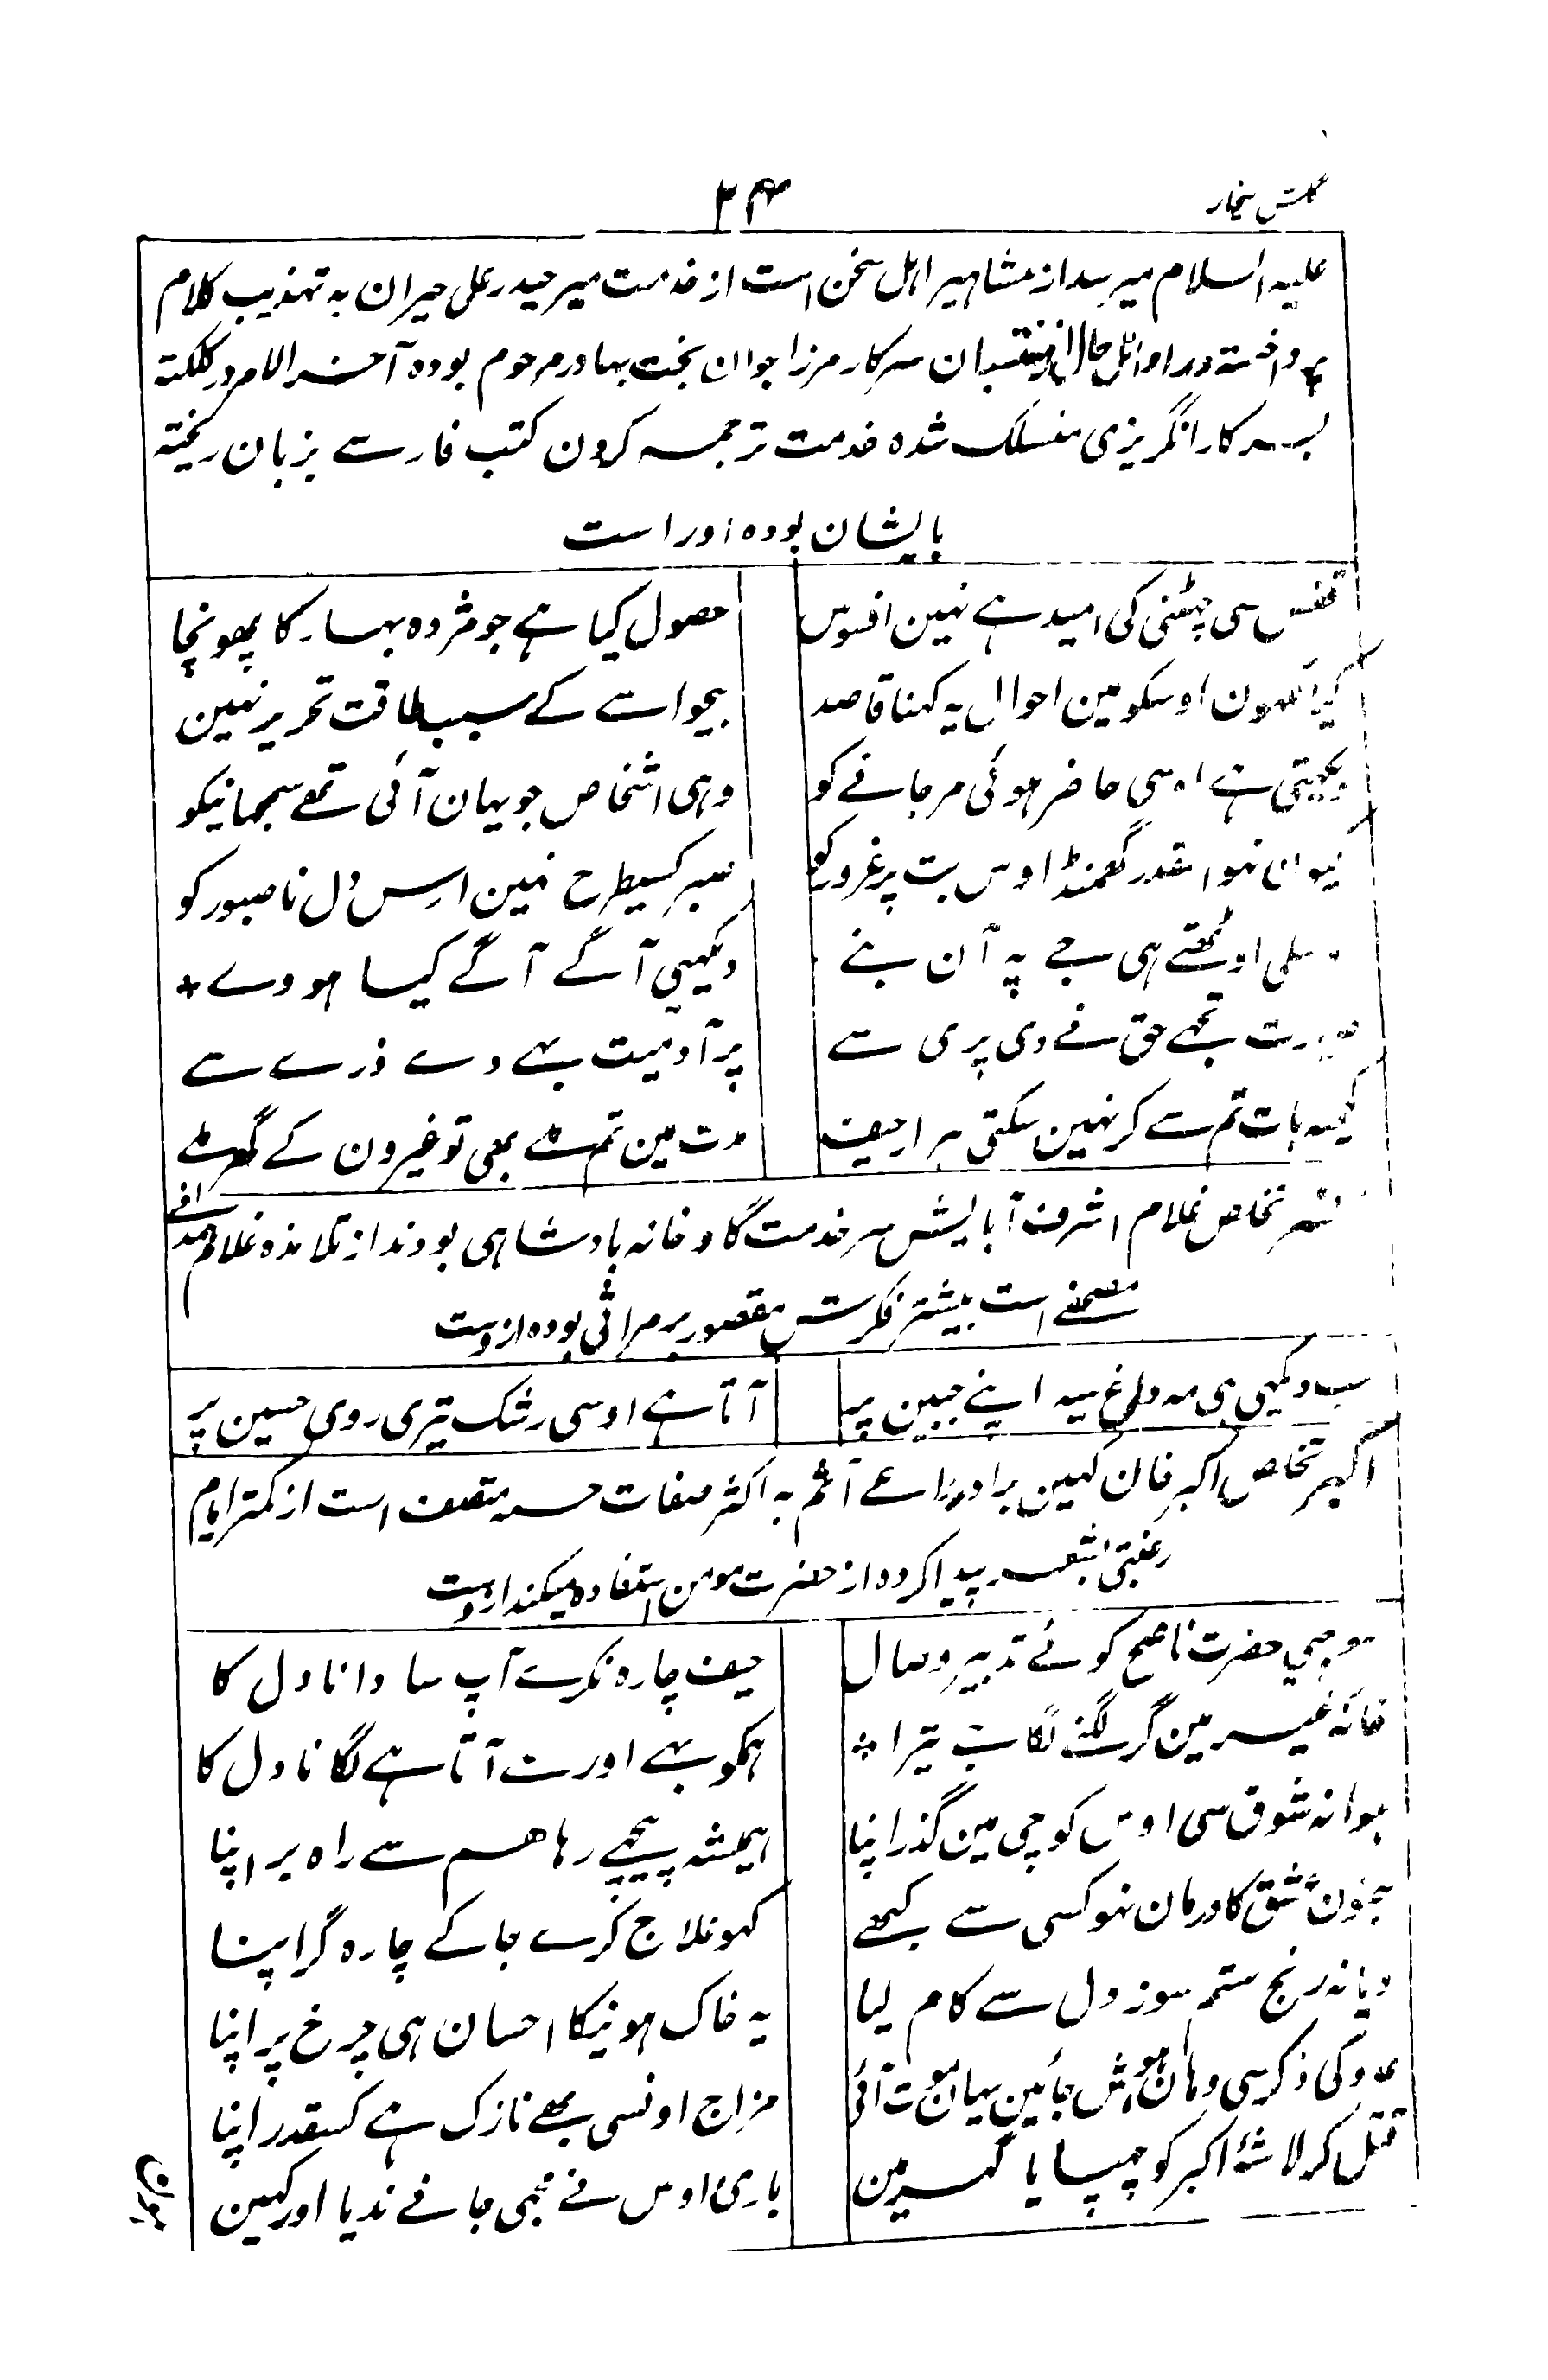 گلشن بیخار
۲۴
علیہ اسلام میرسد از مشاہیر اہل سخن است از خدمت میر حیدر علی حیران بہ تہذیب کلام
پرداختہ در اوائل حال از منتسبان سرکار مرزا جوان بخت بہادر مرحوم بودہ آخر الامر در کلکتہ
بسرکار انگریزی منسلک شدہ خدمت ترجمہ کردن کتب فارسے بزبان ریختہ
بایشان بودہ اوراست
قفس سی چھٹنی کی امید ہے نہین افسوس حصول کیا ہے جو مژدہ بہار کا پھونچا
کیا لکھون اوسکو مین احوال یہ کہنا قاصد بیحواسے کے سبب طاقت تحریر نہین
دیکھیتی ہے اوسی حاضر ہوئی مر جانے کو وہی اشخاص جو یہان آئی تھے سمجھانیکو
کیوان نہو اسقدر گھمنڈ اوس بت پر غرور کو صبر کسیطرح نہین اس دل ناصبور کو
اوٹھتے ہی جے پہ آن بنے دیکھیی آگے آگے کیسا ہووے *
صورت تجھے حق نے دی پری سے پر آدمیت بہے دے ذرے سے
کچہ بات تم سے کر نہین سکتی ہزار حیف مدت مین تم ملے بھی تو غیرون کے گھر ملے
تخلص غلام اشرف آبایش سر خدمت گاو خانہ بادشاہی بودند از تلامذہ غلام ہمدانے
مصحفے است بیشتر فکرش مقصور بر مراثی بودہ ازوست
سب دیکھیی ہی مہ داغ سیہ اپنے جبین پر آتا ہے اوسی رشک تیری روی حسین پر
اکبر تخلص اکبر خان کہین برادر راے آثم بہ اکثر صفات حسنہ متصف است از کمتر ایام
رغبتی بشعر پیدا کردہ از حضرت مومن استفادہ میکند ازوست
سوجھی حضرت ناصح کوئے تدبیر وصال حیف چارہ نکرے آپ سا دانا دل کا
خانہ غیر مین گر لگنے لگا ہے تیرا * ہمکو بہے اور سے آتا ہے لگانا دل کا
ہوا نہ شوق سی اوس کوچی مین گذر اپنا ہمیشہ پیچھے رہا ہم سے راہ بر اپنا
جنون عشق کا درمان نہو کسی سے کبھے کہو علاج کرے جا کے چارہ گر اپنا
دیا نہ رنج ستم سوز دل سے کام لیا یہ خاک ہونیکا احسان ہی چرخ پر اپنا
عدو کی ذکر سی وہان ہوش جائین یہان موت آئی مزاج اونسی بھے نازک ہے کسقدر اپنا
قتل کر لاشۂ اکبر کو چھپایا گھر مین باری اوس نے مجھی جانے ندیا اور کہین